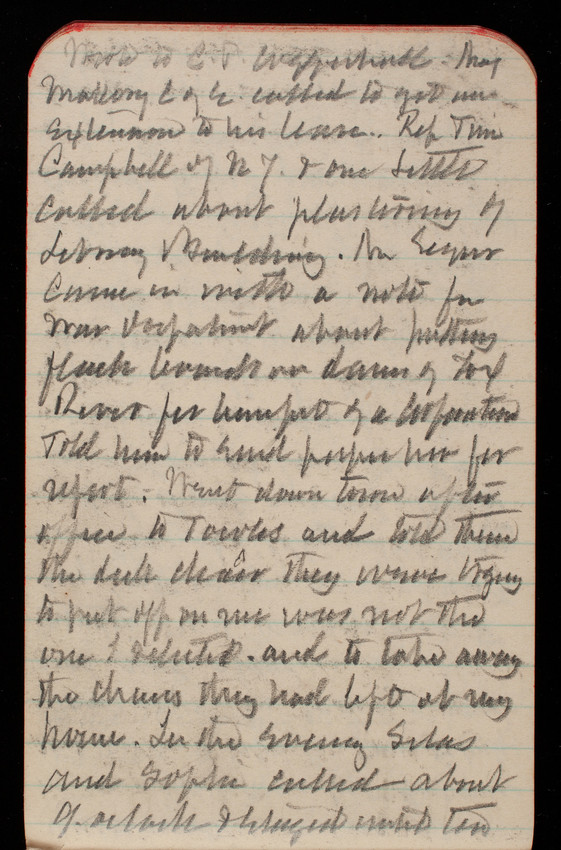 Wrote to C. P. Maj
Mallory C of E called to get an
extension to his leave. Rep Tim
Campbell of N Y. & one Little
called about plastering of
Library Building. An Engr
came in with a note fm
War Depatmt about putting
flash boards on dams of Fox
River for benefit of a Corporation
Told him to send paper here for
report. Went down town after
office to Towles and told them
the desk chair they were trying
to put off on me was not the
one I selected. and to take away
the chairs they had left at my
home. In the Evening Silas
and Sophie called about
9. oclock & stayed until ten